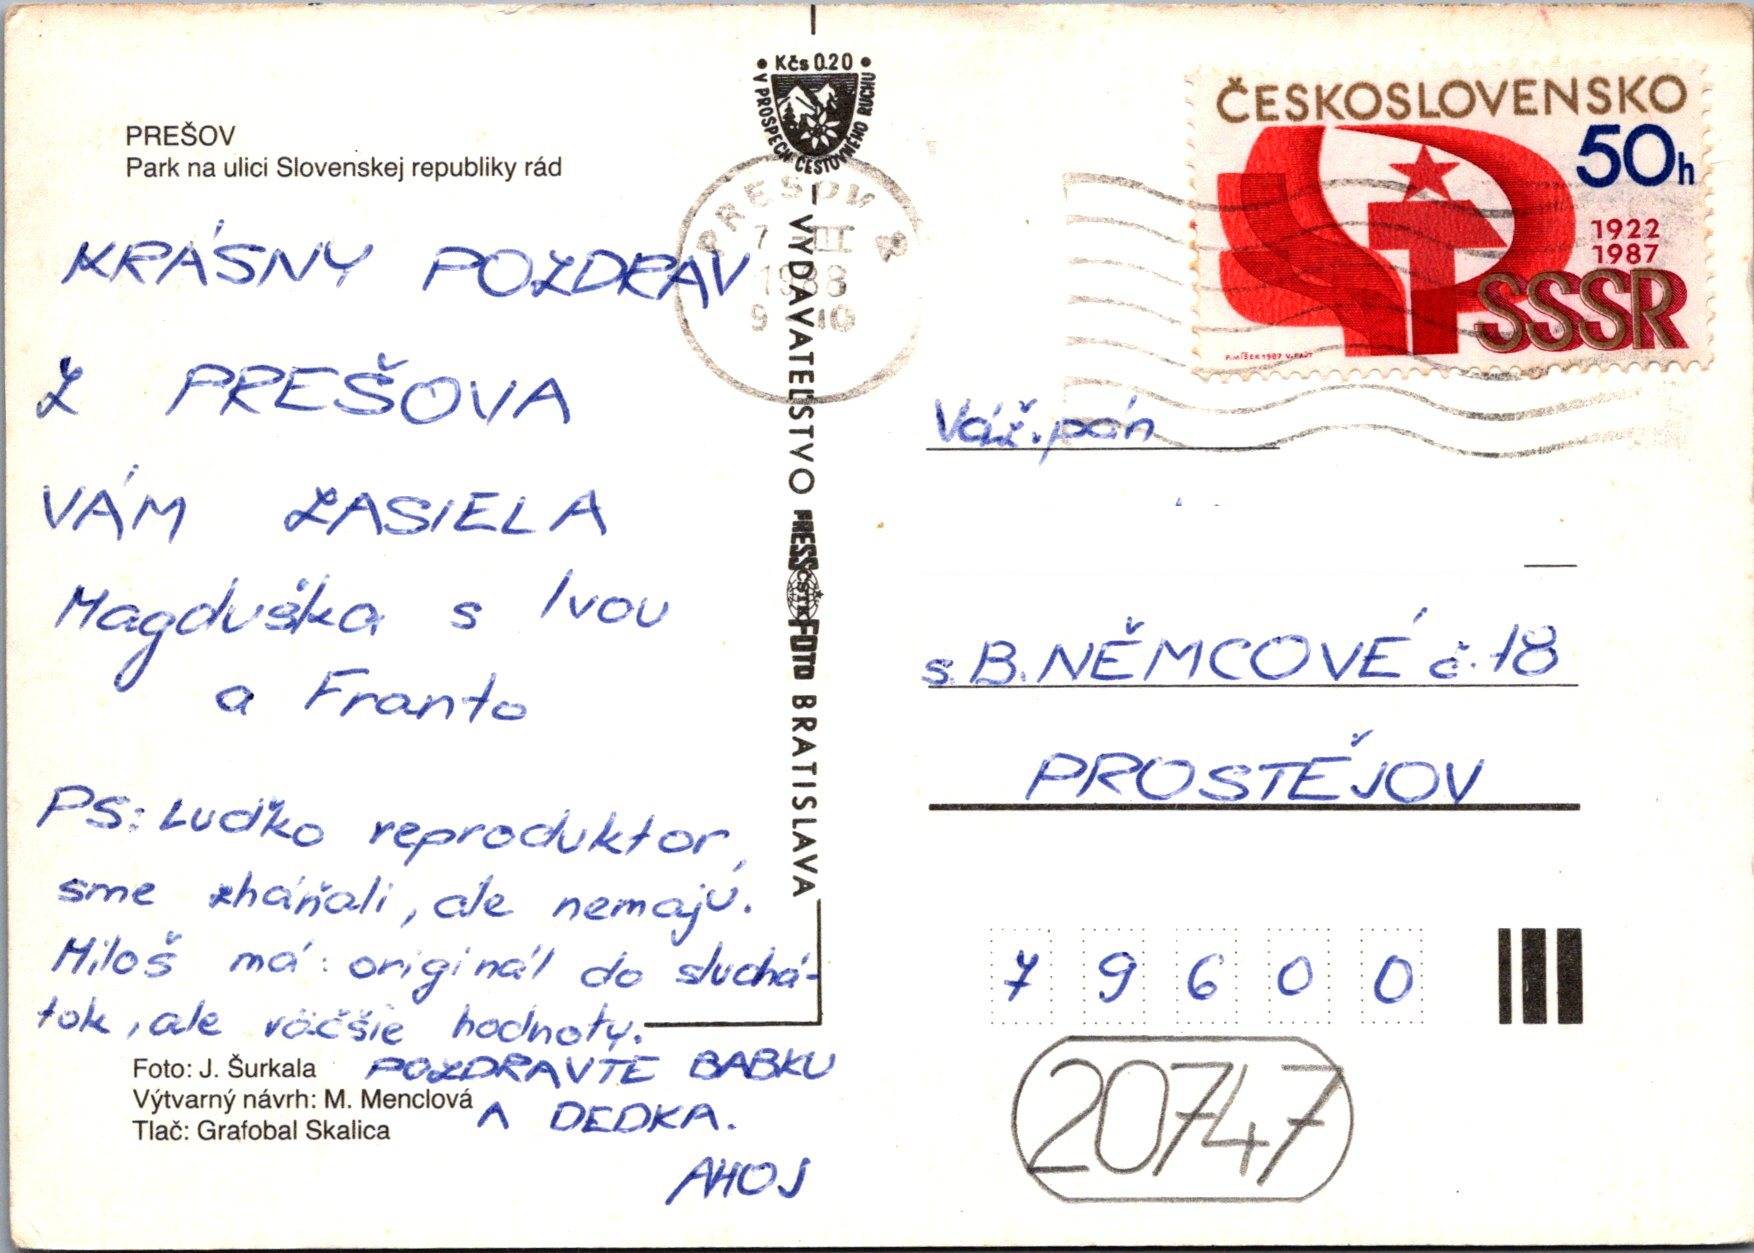 PREŠOV
Park na ulici Slovenskej republiky rád
KRÁSNY POZDRAV
Z PREŠOVA
VÁM ZASIELA
Magduška s Ivou
a Franto
PS: Luďko reproduktor,
sme zháňali, ale nemajú.
Miloš má originál do sluchá-
tok, ale väčšie hodnoty.
POZDRAVTE BABKU
A DEDKA.
AHOJ
Foto: J. Šurkala
Výtvarný návrh: M. Menclová
Tlač: Grafobal Skalica
Kčs 0.20
V PROSPECH CESTOVNÉHO RUCHU
VYDAVATEĽSTVO PRESSFOTO BRATISLAVA
ČSTK
PREŠOV 2
7 III
1988
9 10
ČESKOSLOVENSKO
50h
1922
1987
SSSR
P. MÍŠEK 1987 V. FAJT
Váž. pán
s. B. NĚMCOVÉ č. 18
PROSTĚJOV
7 9 6 0 0
20747